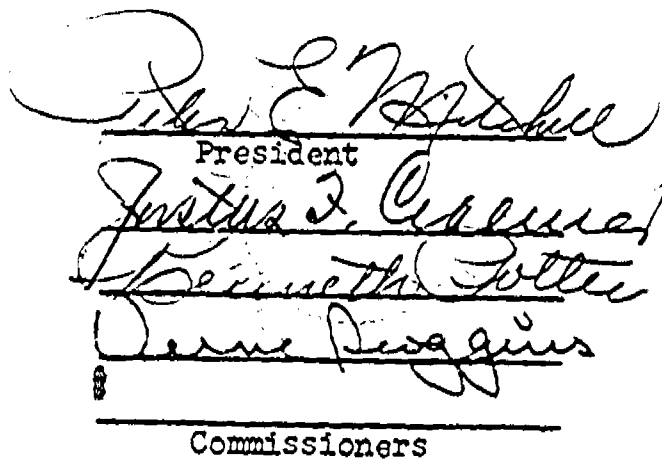 Peter E Mitchell
President
Justus F. Craemer
Kenneth Potter
Verne Scoggins
Commissioners